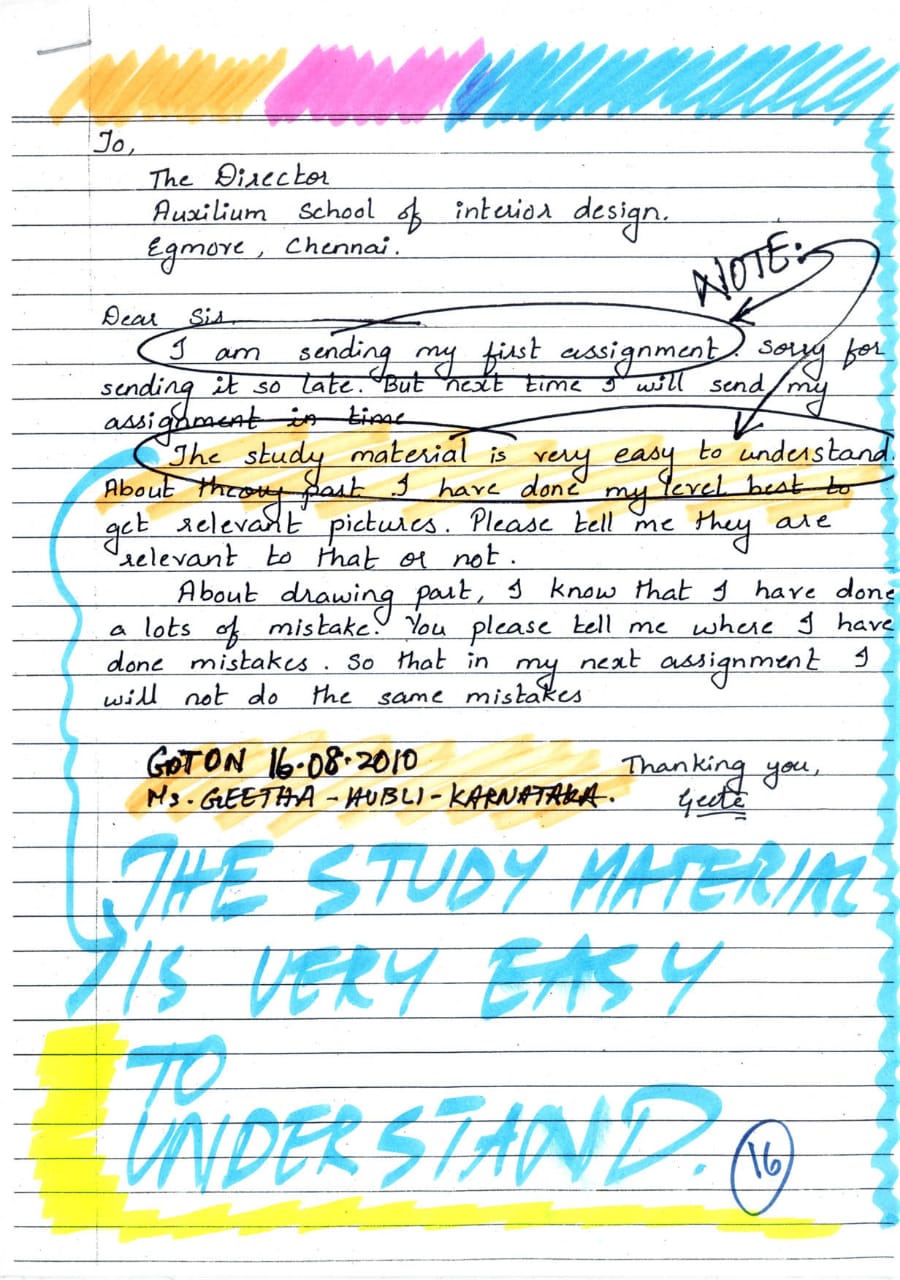 To,
The Director
Auxilium School of interior design.
Egmore, Chennai.
NOTE:
Dear Sir
I am sending my first assignment. Sorry for
sending it so late. But next time I will send my
assignment in time
The study material is very easy to understand.
About theory part I have done my level best to
get relevant pictures. Please tell me they are
relevant to that or not.
About drawing part, I know that I have done
a lots of mistake. You please tell me where I have
done mistakes. So that in my next assignment I
will not do the same mistakes
GOT ON 16.08.2010
Ms. GEETHA - HUBLI - KARNATAKA.
Thanking you,
Geeta
THE STUDY MATERIAL
IS VERY EASY
TO
UNDERSTAND.
16